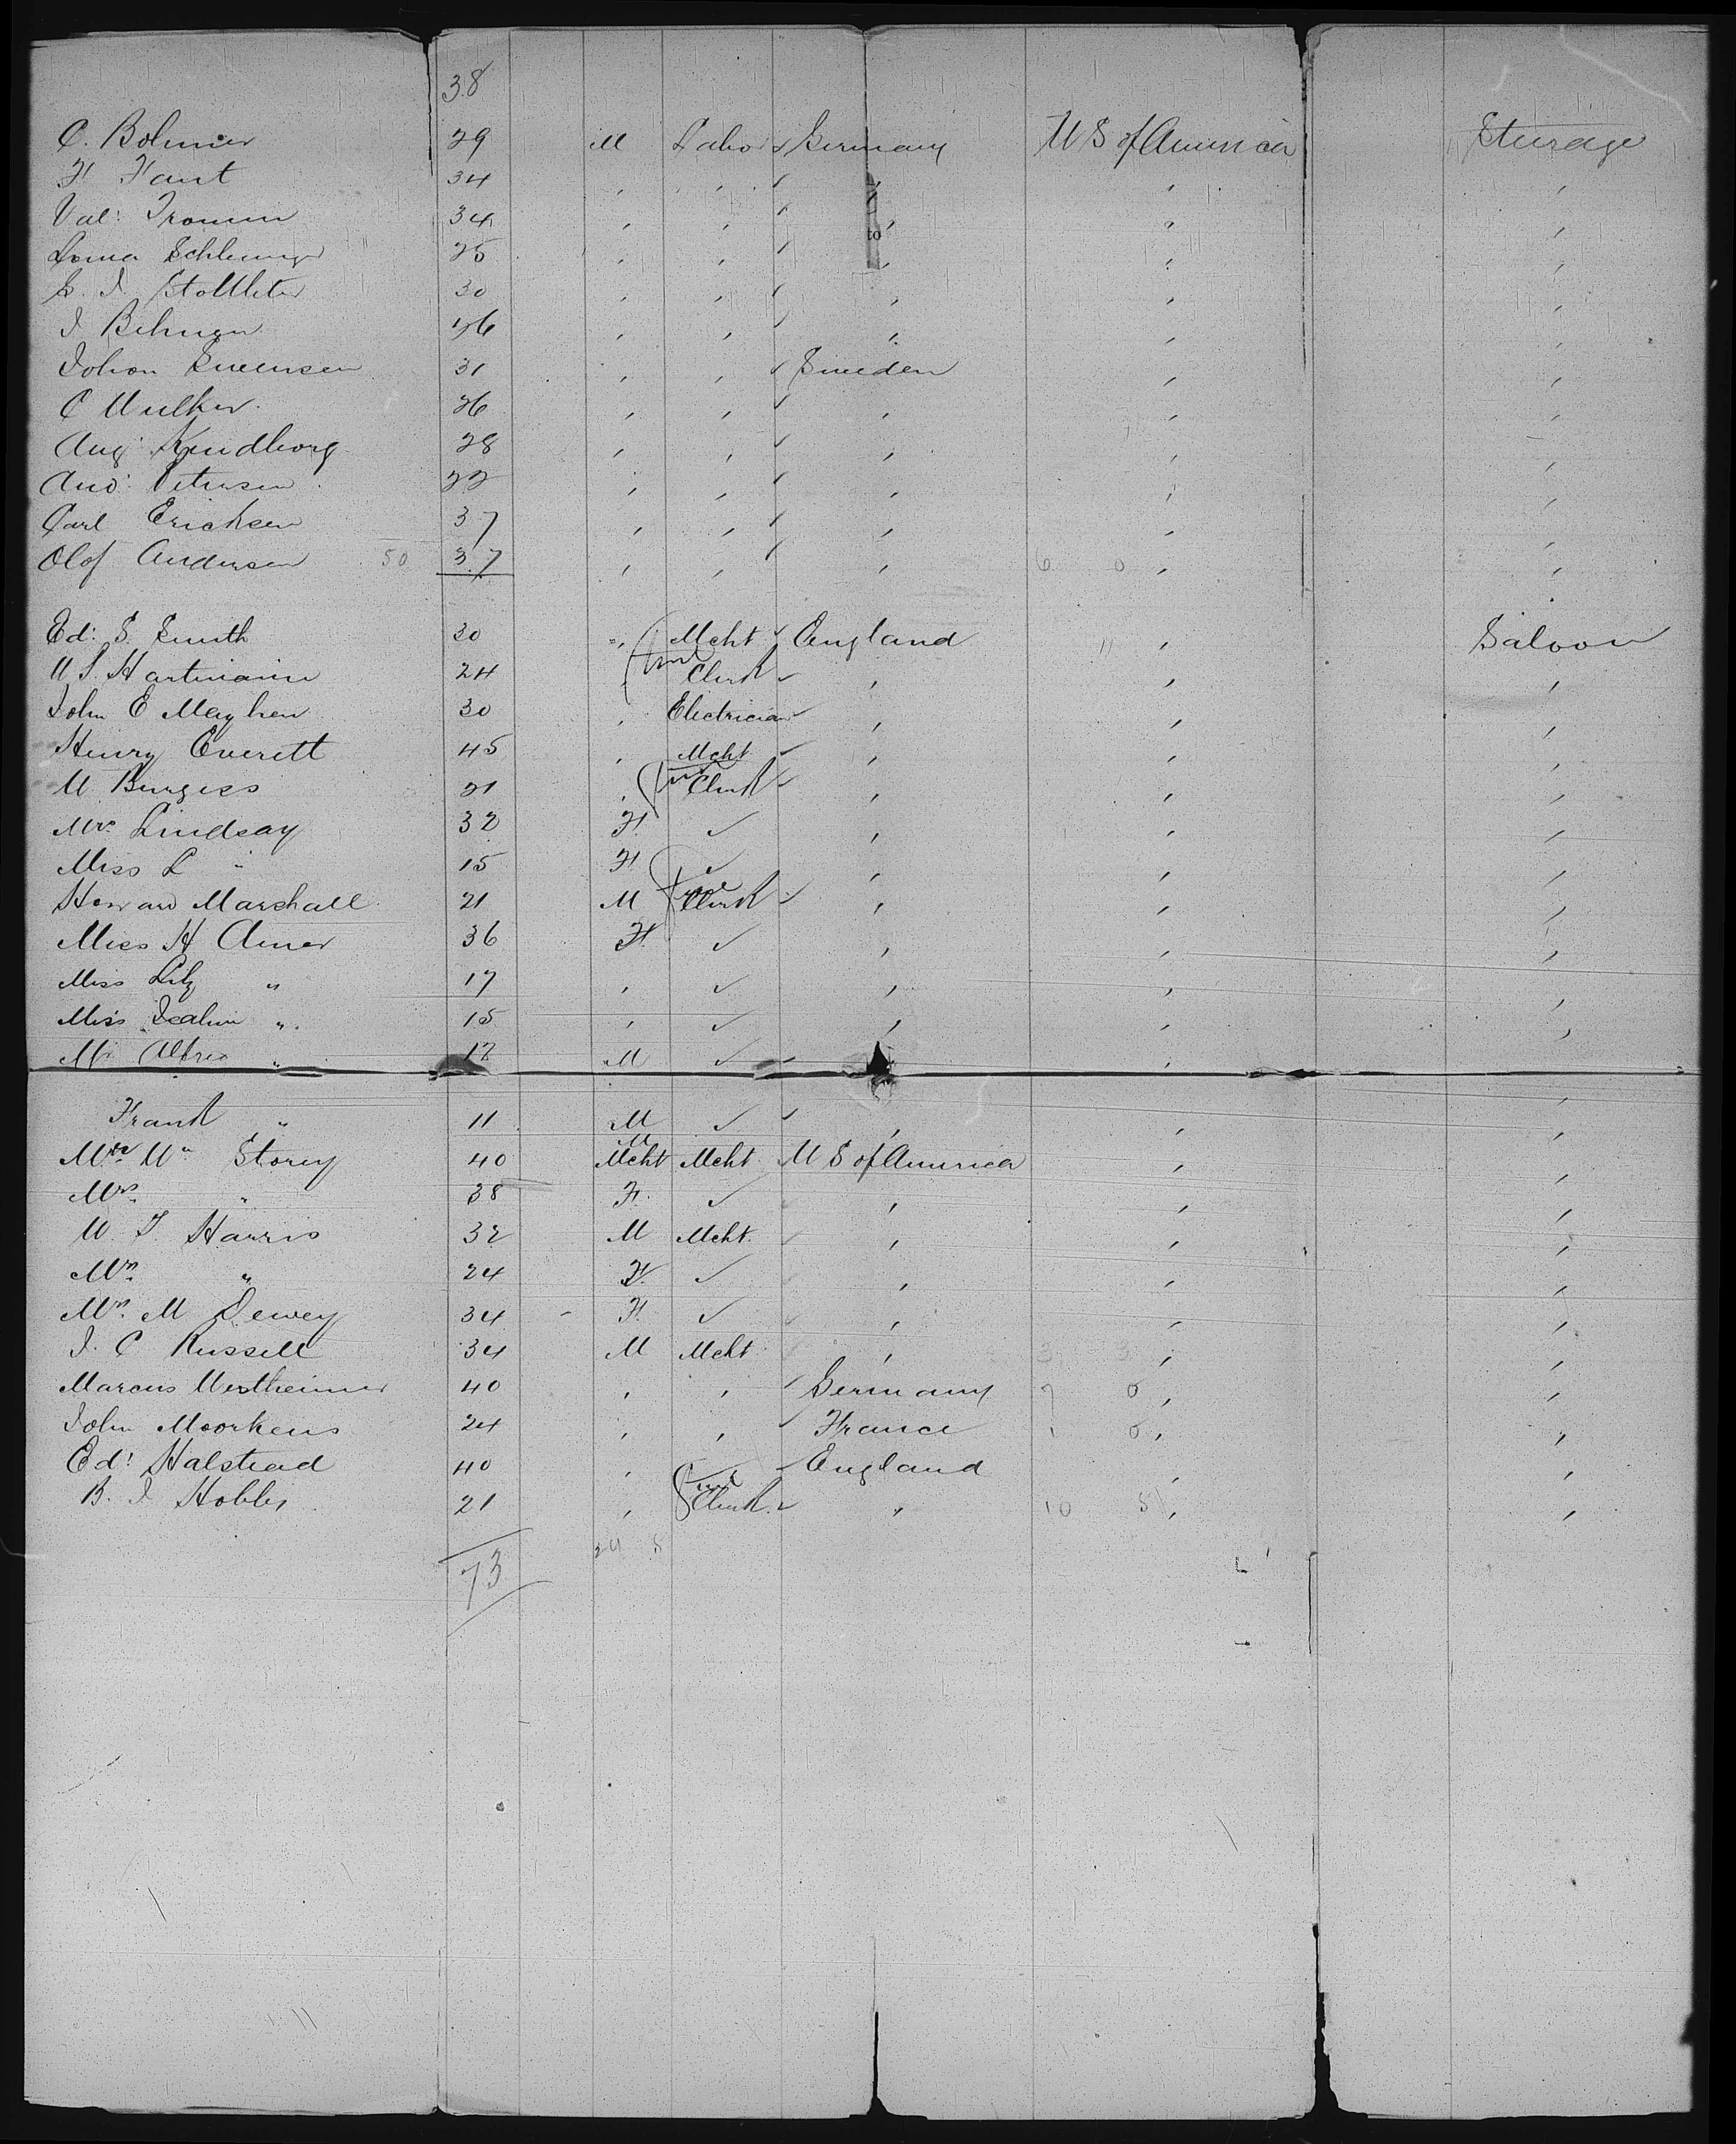 38
C. Bolmier 29 M Labor ✓ Germany U S of America Steerage
H Hant 34 , , ✓ , , ,
Val: Tromm 34 , , ✓ , , ,
to
25 , , ✓ , , ,
30 , , ✓ , , ,
J. Behngen 46 , , ✓ , , ,
Johon Swensen 31 , , ✓ Sweden , ,
C Wulker 26 , , ✓ , , ,
Aug: Kindborg 28 , , ✓ , , ,
And: Petersen 22 , , ✓ , , ,
Carl Ericksen 37 , , ✓ , , ,
Olof Andersen 50 37 , , ✓ , 6 0 , ,
Ed: S. Smith 30 " Mcht ✓ England 11 , Saloon
W S. Hartmann 24 , Clerk ✓ , , ,
John E Mayhew 30 , Electrician ✓ , , ,
Henry Everett 45 , Mcht ✓ , , ,
W Burgess 21 , Clerk ✓ , , ,
Mrs. Lindsay 32 F. ✓ , , ,
Miss L " 15 F ✓ , , ,
Howard Marshall 21 M Clerk ✓ , , ,
Miss H Amer 36 F. ✓ , , ,
Miss Lily " 17 , ✓ , , ,
Miss " 15 , ✓ , , ,
Mr Alfred " 12 M ✓ ✓ ,
Frank " 11 M ✓ ✓ , , ,
Mr Wm Storey 40 M Mcht Mcht U S of America , ,
Mrs. " 38 F. ✓ , , ,
W. T. Harris 32 M Mcht. ✓ , , ,
Mrs. " 24 F. ✓ , , ,
Mrs. M Dewey 34 - F. ✓ ✓ , , ,
J. C Russell 34 M Mcht , 3 3 , ,
Marcus Wertheimer 40 , , ✓ Germany 7 0 , ,
John Moorkens 24 , , ✓ France 1 0 , ,
Ed: Halstead 40 , England , ,
B. J Hobbs 21 , Clerk. ✓ , 10 5 , ,
73 24 5